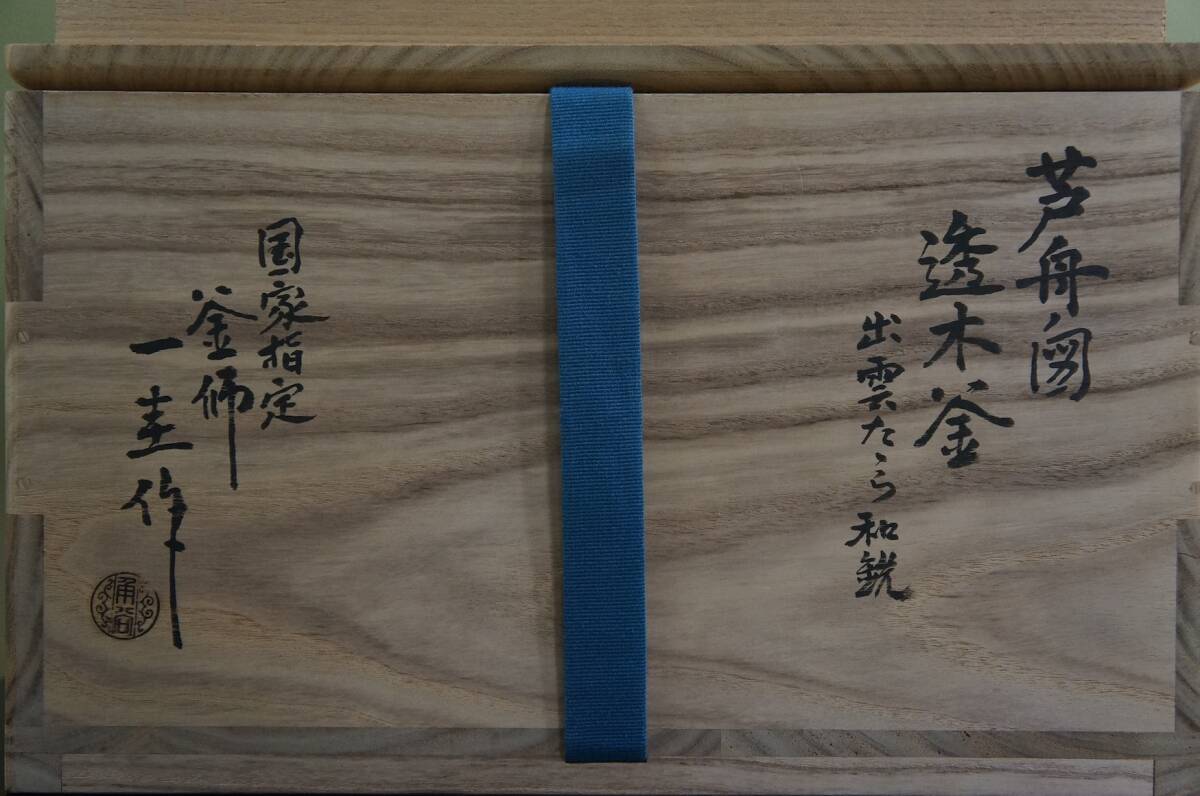 芦舟図
透木釜
出雲たゝら和銑
国家指定
釜師
一圭作
角谷